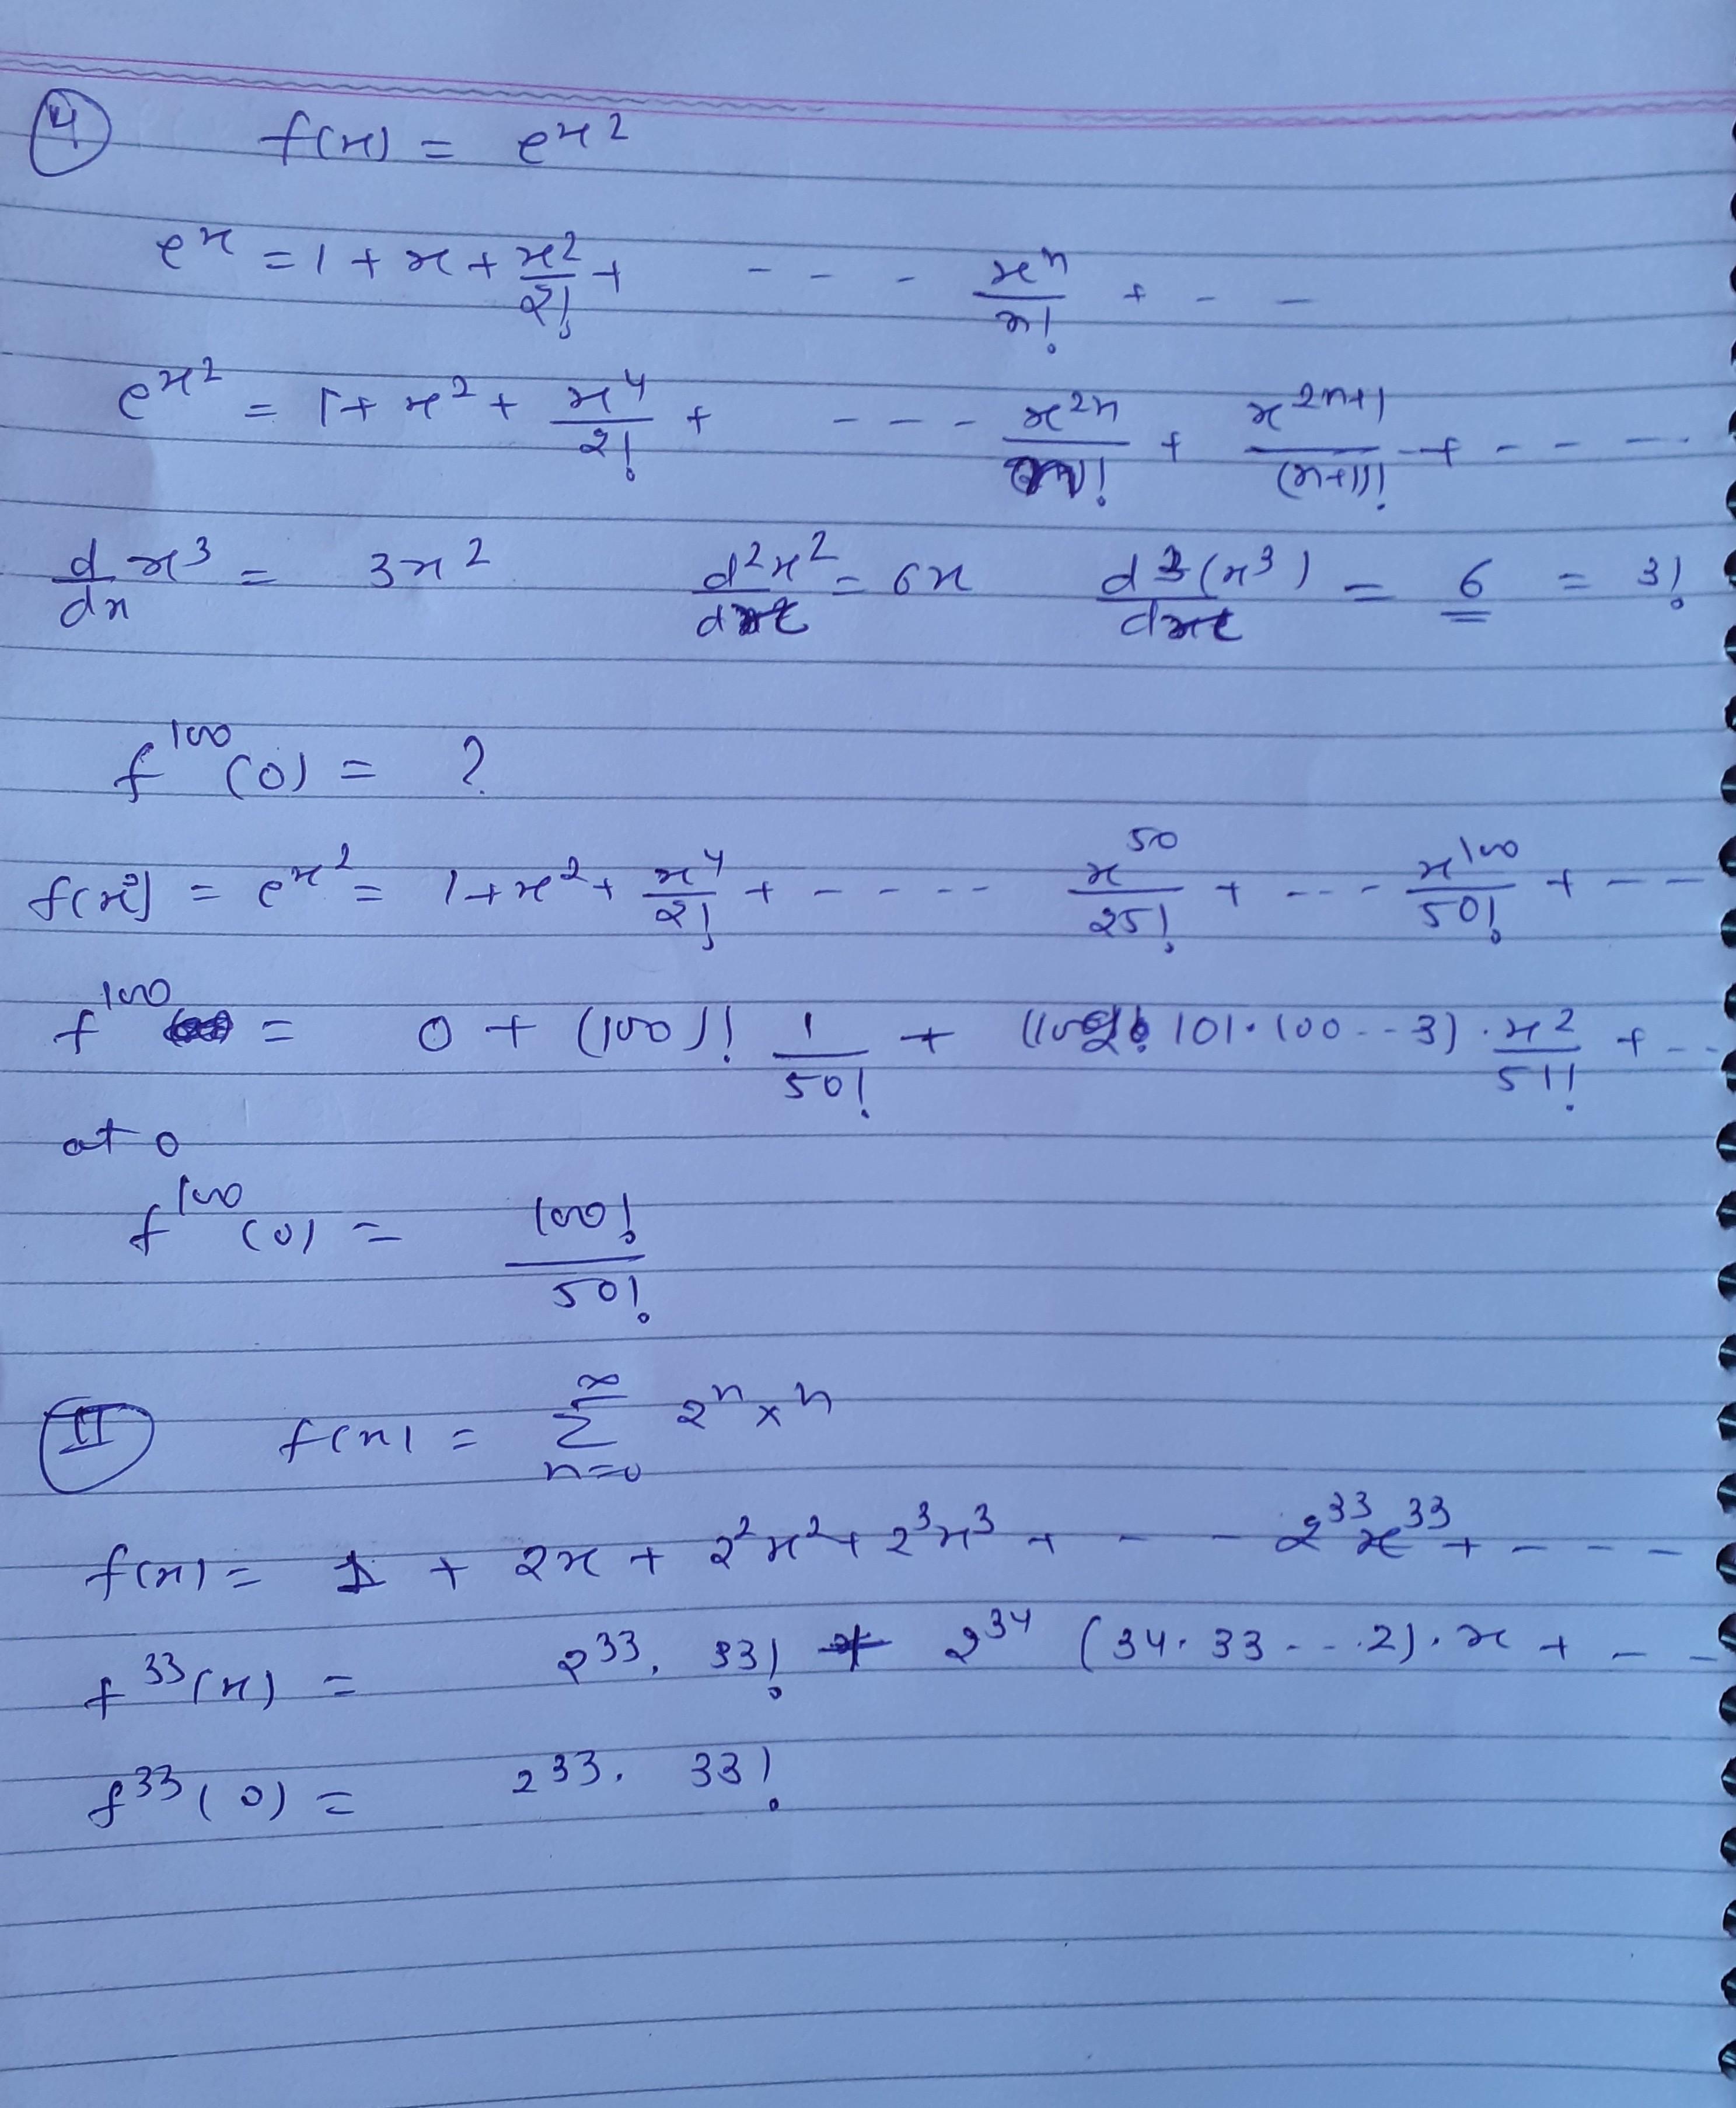 4 f(x) = e^{x^2}
e^x = 1 + x + \frac{x^2}{2!} + - - - \frac{x^n}{n!} + - -
e^{x^2} = 1 + x^2 + \frac{x^4}{2!} + - - - \frac{x^{2n}}{n!} + \frac{x^{2n+1}}{(n+1)!} + - - -
\frac{d}{dx} x^3 = 3x^2 \frac{d^2 x^2}{dx} = 6x \frac{d^3 (x^3)}{dx} = 6 = 3!
f^{100}(0) = ?
f(x^2) = e^{x^2} = 1 + x^2 + \frac{x^4}{2!} + - - - - \frac{x^{50}}{25!} + - - - \frac{x^{100}}{50!} + - -
f^{100} = 0 + (100)! \frac{1}{50!} + ( 101 · 100 - - 3) · \frac{x^2}{51!} + - -
at 0
f^{100}(0) = \frac{100!}{50!}
II f(x) = \sum_{n=0}^{\infty} 2^n x^n
f(x) = 1 + 2x + 2^2x^2 + 2^3x^3 + - - 2^{33}x^{33} + - - -
f^{33}(x) = 2^{33} . 33! + 2^{34} (34 · 33 - - · 2) · x + - -
f^{33}(0) = 2^{33} . 33!